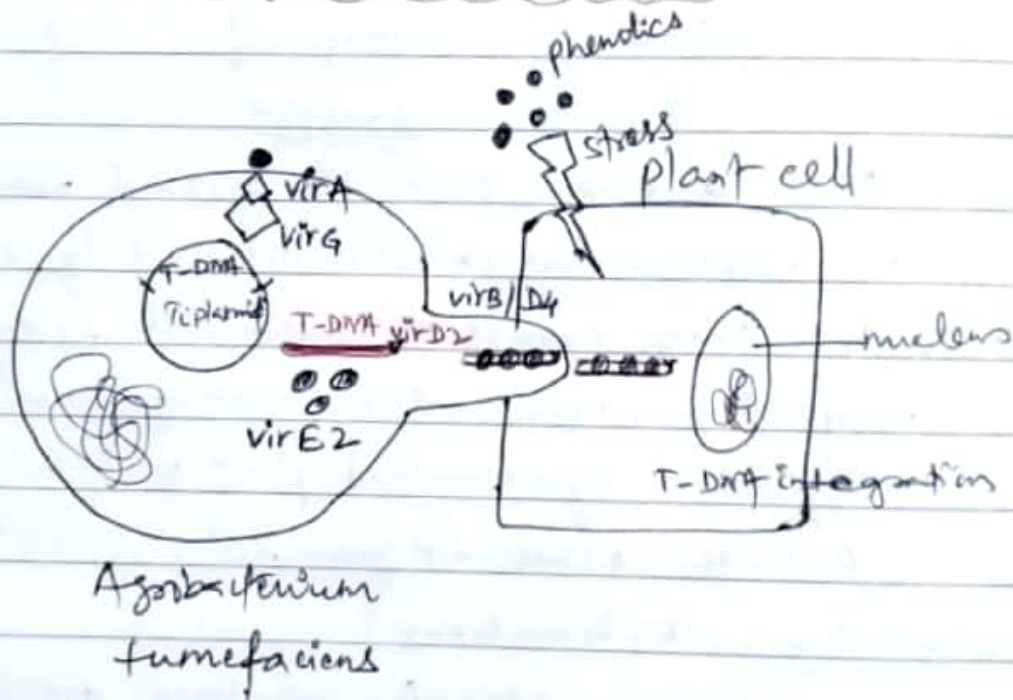 phenolics
stress
plant cell
virA
virG
T-DNA
Ti plasmid
virB/D4
T-DNA virD2
virE2
nucleus
T-DNA integration
Agrobacterium
tumefaciens